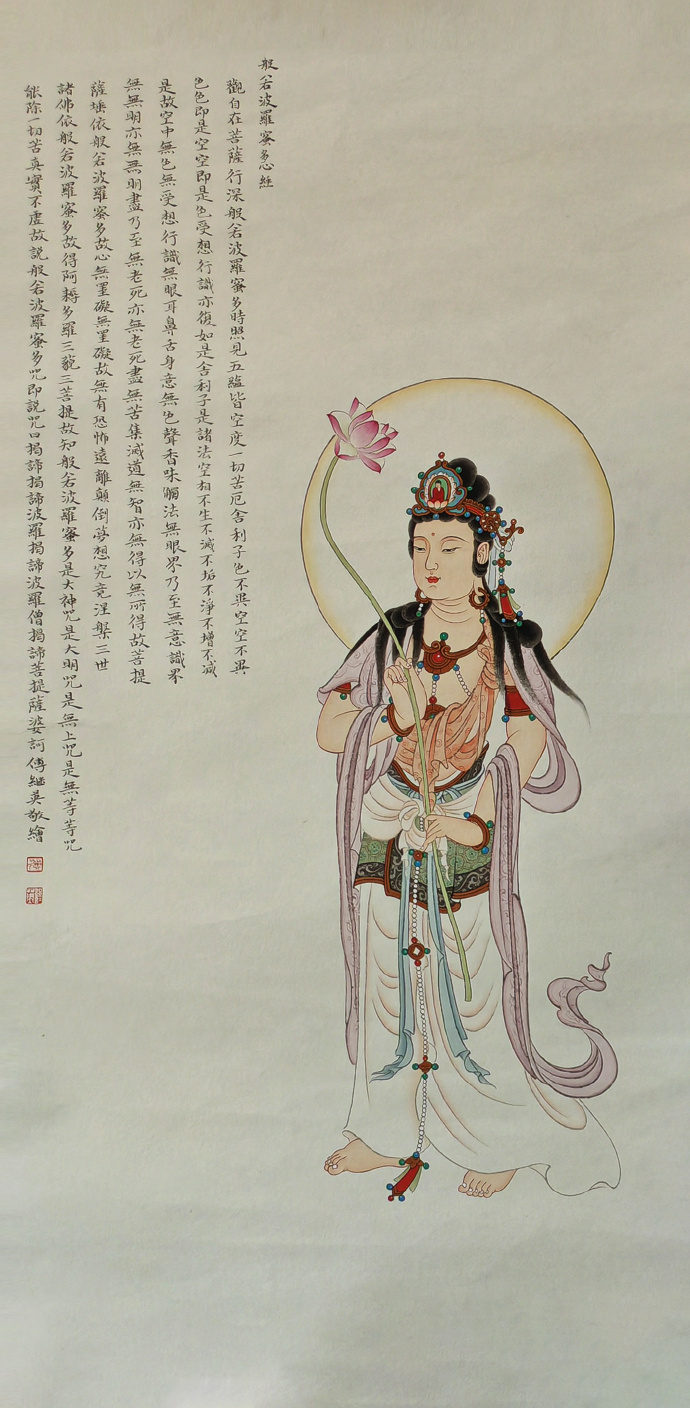 般若波羅蜜多心經
觀自在菩薩行深般若波羅蜜多時照見五蘊皆空度一切苦厄舍利子色不異空空不異
色色即是空空即是色受想行識亦復如是舍利子是諸法空相不生不滅不垢不淨不增不減
是故空中無色無受想行識無眼耳鼻舌身意無色聲香味觸法無眼界乃至無意識界
無無明亦無無明盡乃至無老死亦無老死盡無苦集滅道無智亦無得以無所得故菩提
薩埵依般若波羅蜜多故心無罣礙無罣礙故無有恐怖遠離顛倒夢想究竟涅槃三世
諸佛依般若波羅蜜多故得阿耨多羅三藐三菩提故知般若波羅蜜多是大神咒是大明咒是無上咒是無等等咒
能除一切苦真實不虛故說般若波羅蜜多咒即說咒曰揭諦揭諦波羅揭諦波羅僧揭諦菩提薩婆訶 傅繼英敬繪